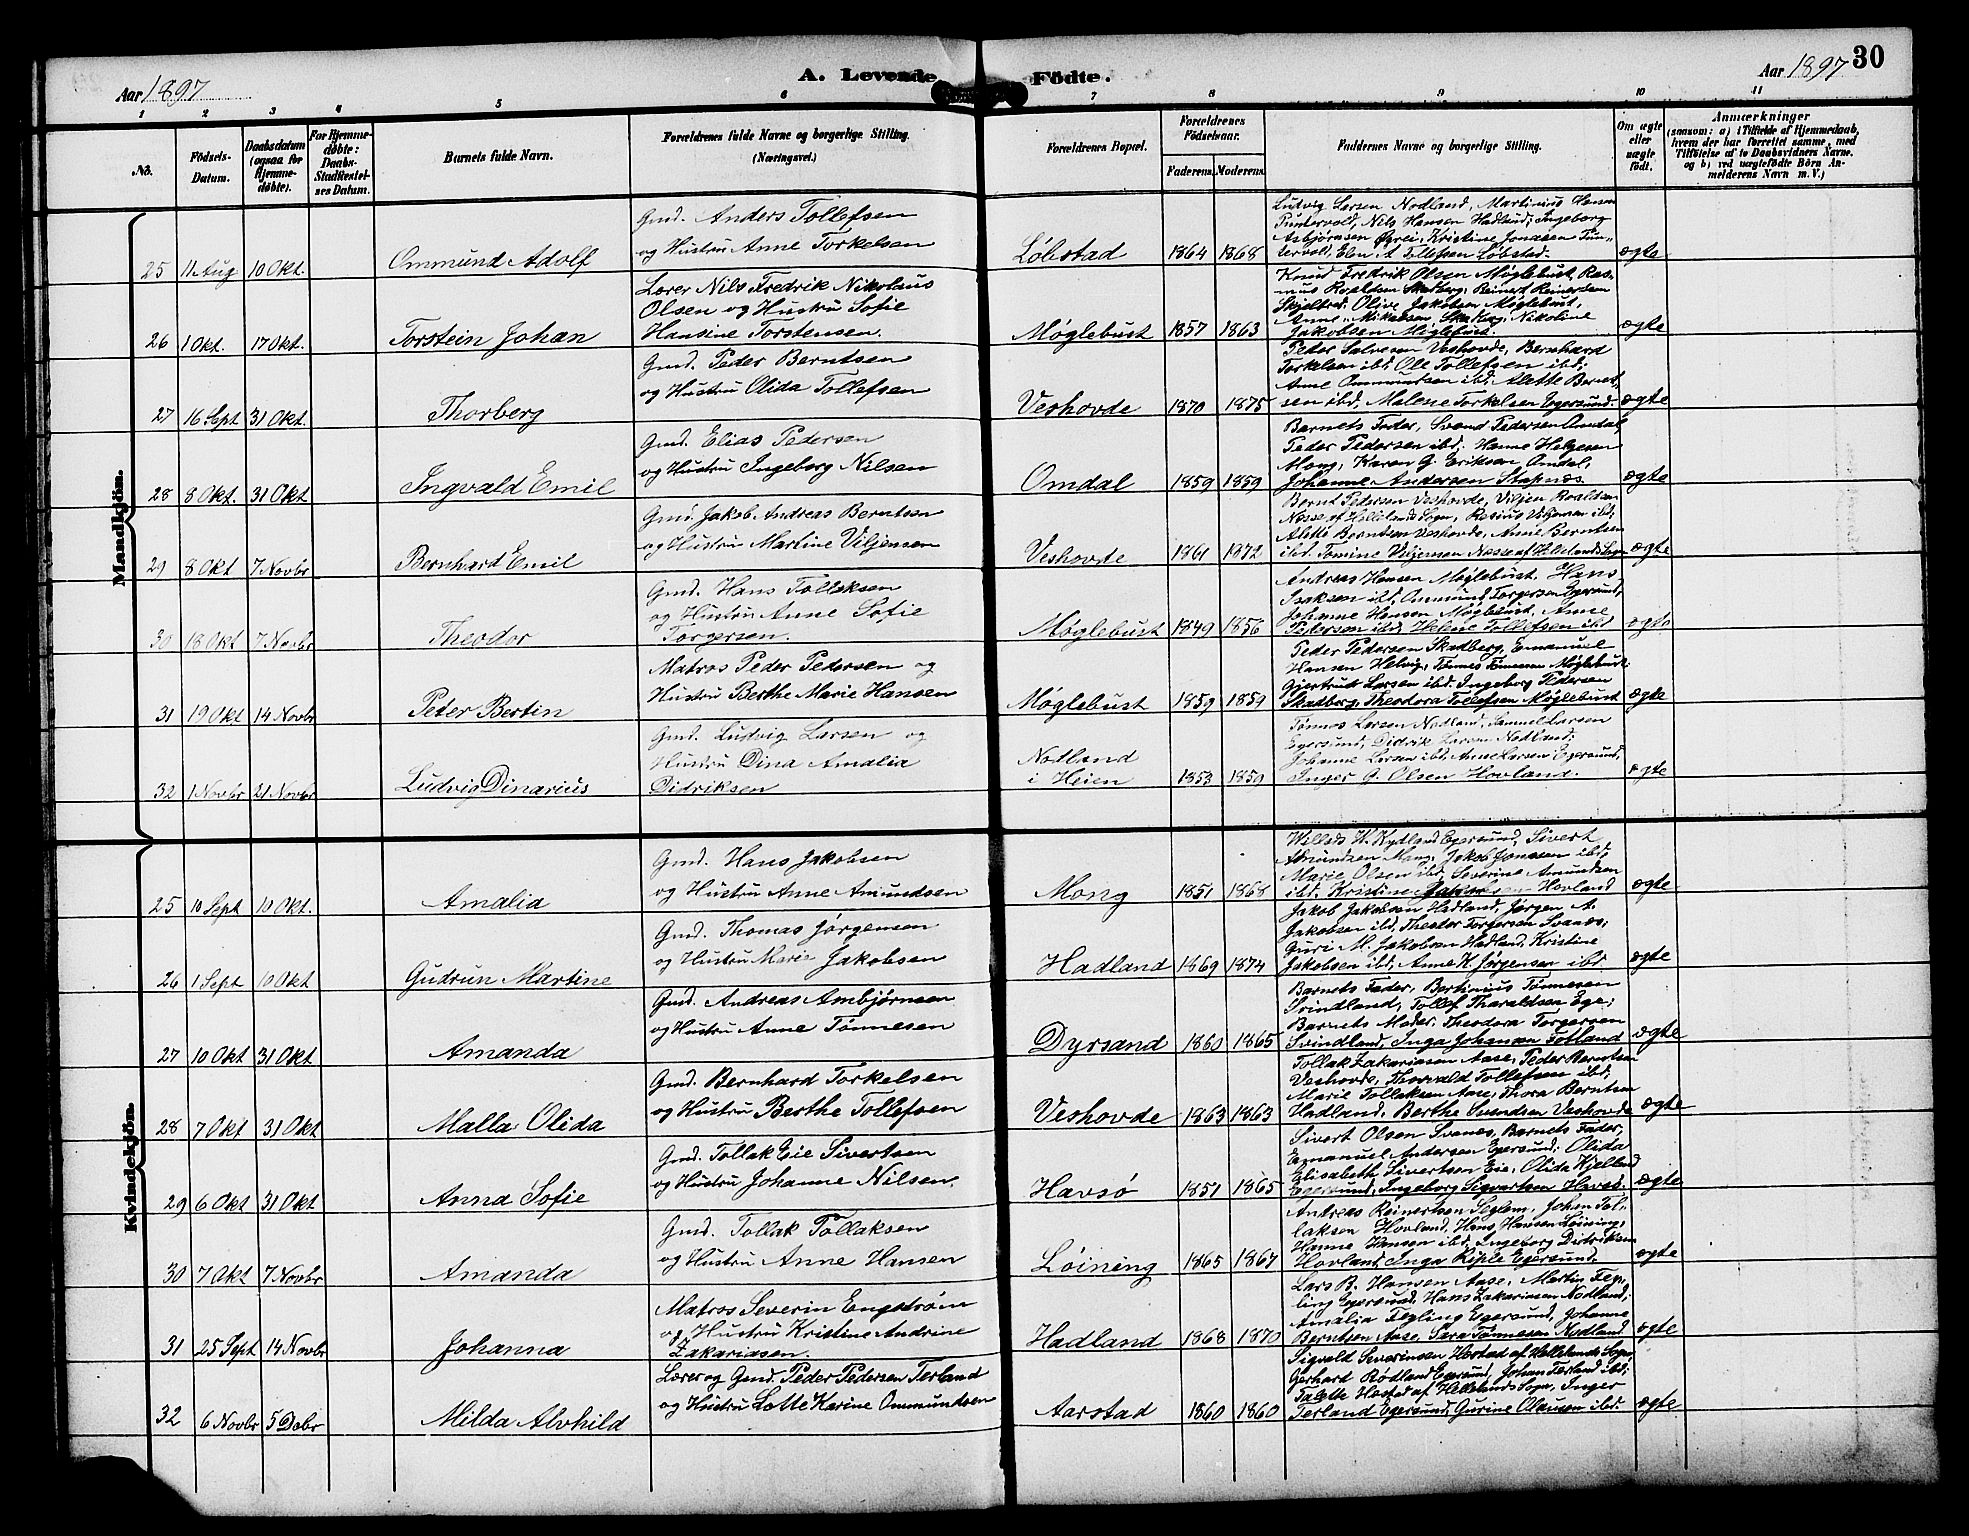 Aar 1897
A. Levende Födte.
Aar 1897 30
1 2 3 4 5 6 7 8 9 10 11
No.
Födsels-Datum.
Daabsdatum (ogsaa for Hjemmedøbte).
For Hjemmedøbte: Daabs-Stadfæstelses Datum.
Barnets fulde Navn.
Forældrenes fulde Navne og borgerlige Stilling. (Næringsvei.)
Forældrenes Bopæl.
Forældrenes Födselsaar.
Faderens. Moderens.
Faddernes Navne og borgerlige Stilling.
Om ægte eller uægte födt.
Anmærkninger
(saasom: a) i Tilfælde af Hjemmedaab, hvem der har forrettet samme, med Tilføielse af to Daabsvidners Navne, og b) ved uægtefödte Börn Anmelderens Navn m. V.)
Mandkjön.
25 11 Aug 10 Okt. Ommund Adolf
Gmd. Anders Tollefsen
og Hustru Anne Torkelsen
Løbstad 1864 1868
Ludvig Larsen Nodland, Martinius Hansen
Puntervold, Nils Hansen Hadland; Ingeborg
Asbjørnsen Øyrei, Kristine Jonassen Pun-
tervold, Elen A. Tollefsen Løbstad.
ægte
26 1 Okt. 17 Okt. Torstein Johan
Lærer Nils Fredrik Nikolaus
Olsen og Hustru Sofie
Hansine Torstensen.
Møglebust 1857 1863
Knud Fredrik Olsen Møglebust, Ras-
mus Roaldsen Skadberg, Reinert Reinertsen
Skjelbred; Olive Jakobsen Møglebust,
Anne Mikalsen Skadberg, Nikoline
Jakobsen Møglebust.
ægte
27 16 Sept 31 Okt. Thorberg
Gmd. Peder Berntsen
og Hustru Olida Tollefsen
Veshovde 1870 1875
Peder Salvesen Veshovde, Bernhard
Torkelsen ibd, Ole Tollefsen ibd;
Anne Ommundsen ibd, Alette Bernt-
sen ibd, Malene Torkelsen Egersund.
ægte
28 8 Okt. 31 Okt Ingvald Emil
Gmd. Elias Pedersen
og Hustru Ingeborg Nilsen
Omdal 1859 1859
Barnets Fader, Svend Pedersen Omdal,
Peder Pedersen ibd; Hanne Helgesen
Mong, Karen G. Eriksen Omdal,
Johanne Andersen Stapnæs.
ægte
29 8 Okt 7 Novbr Bernhard Emil
Gmd. Jakob Andreas Berntsen
og Hustru Martine Viljensen
Veshovde 1861 1872
Bernt Pedersen Veshovde, Viljen Roaldsen
Næsse af Hellelands Sogn, Rasius Viljensen ibd;
Alette Berntsen Veshovde, Anne Berntsen
ibd. Tomine Viljensen Næsse af Hellelands Sogn
ægte
30 18 Okt 7 Novbr Theodor
Gmd. Hans Tollaksen
og Hustru Anne Sofie
Torgersen.
Møglebust 1849 1856
Andreas Hansen Møglebust, Hans
Isaksen ibd, Ommund Torgersen Egersund;
Johanne Hansen Møglebust, Anne
Pedersen ibd, Helene Tollefsen ibd
ægte
31 19 Okt 14 Novbr Peter Bertin
Matros Peder Pedersen og
Hustru Berthe Marie Hansen
Møglebust 1859 1859
Peder Pedersen Skadberg, Emanuel
Hansen Helvig, Tønnes Tønnesen Møglebust
Gjertrud Larsen ibd. Ingeborg Pedersen
Skadberg, Theodora Tollefsen Møglebust
ægte
32 1 Novbr 21 Novbr Ludvig Dinarius
Gmd. Ludvig Larsen og
Hustru Dina Amalia
Didriksen
Nodland
i Heien 1853 1859
Tønnes Larsen Nodland, Samuel Larsen
Egersund, Didrik Larsen Nodland;
Johanne Larsen ibd. Anne Larsen Egersund,
Inger G. Olsen Hovland.
ægte
Kvindekjön.
25 10 Sept 10 Okt. Amalia
Gmd. Hans Jakobsen
og Hustru Anne Amundsen
Mong 1851 1868
Willads W. Kydland Egersund, Sivert
Amundsen Mong, Jakob Jonssen ibd;
Marie Olsen ibd, Severine Amundsen
ibd, Kristine Jakobsen Hovland
ægte
26 1 Sept 10 Okt Gudrun Martine
Gmd. Thomas Jørgensen
og Hustru Marie Jakobsen
Hadland 1869 1874
Jakob Jakobsen Hadland, Jørgen A.
Jakobsen ibd, Theodor Torgersen Svanæs;
Guri M. Jakobsen Hadland, Kristine
Jakobsen ibd, Anne K. Jørgensen ibd
ægte
27 10 Okt 31 Okt Amanda
Gmd. Andreas Ambjørnsen
og Hustru Anne Tønnesen
Dyrsand 1860 1865
Barnets Fader, Bertinius Tønnesen
Svindland, Tollef Tharaldsen Ege;
Barnets Moder, Theodora Torgersen
Svindland, Inga Johsman Fotland
ægte
28 7 Okt 31 Okt Malla Olida
Gmd. Bernhard Torkelsen
og Hustru Berthe Tollefsen
Veshovde 1863 1863
Tollak Zakariasen Aase, Peder Berntsen
Veshovde, Thorvald Tollefsen ibd;
Marie Tollaksen Aase, Thora Berntsen
Hadland, Berthe Svendsen Veshovde
ægte
29 6 Okt 31 Okt Anna Sofie
Gmd. Tollak Eie Sivertsen
og Hustru Johanne Nilsen
Havsø 1851 1865
Sivert Olsen Svanæs, Barnets Fader,
Emanuel Andersen Egersund; Olida
Elisabeth Sivertsen Eie, Olida Kjelland
Egersund, Ingeborg Sigvartsen Havsø.
ægte
30 7 Okt 7 Novbr Amanda
Gmd. Tollak Tollaksen
og Hustru Anne Hansen
Løining 1865 1867
Andreas Reinertsen Seglem, Johan Tol-
laksen Hovland, Hans Hansen Løining;
Hanne Hansen ibd, Ingeborg Didriksen
Hovland, Inga Kiple Egersund.
ægte
31 25 Sept 14 Novbr Johanna
Matros Severin Engstrøm
og Hustru Kristine Andrine
Zakariasen.
Hadland 1868 1870
Lars B. Hansen Aase, Martin Feg-
ling Egersund, Hans Zakariasen Nodland;
Amalia Fegling Egersund, Johanne
Berntsen Aase, Sara Tønnesen Nodland
ægte
32 6 Novbr 5 Debr Milda Alvhild
Lærer og Gmd. Peder Pedersen Terland
og Hustru Lotte Karine Ommundsen
Aarstad 1860 1860
Sigvald Severinsen Høstad af Hellelands Sogn,
Gerhard Rødland Egersund, Johan Terland ibd;
Talette Høstad af Hellelands Sogn, Inger
Terland Egersund, Gurine Olausen ibd.
ægte